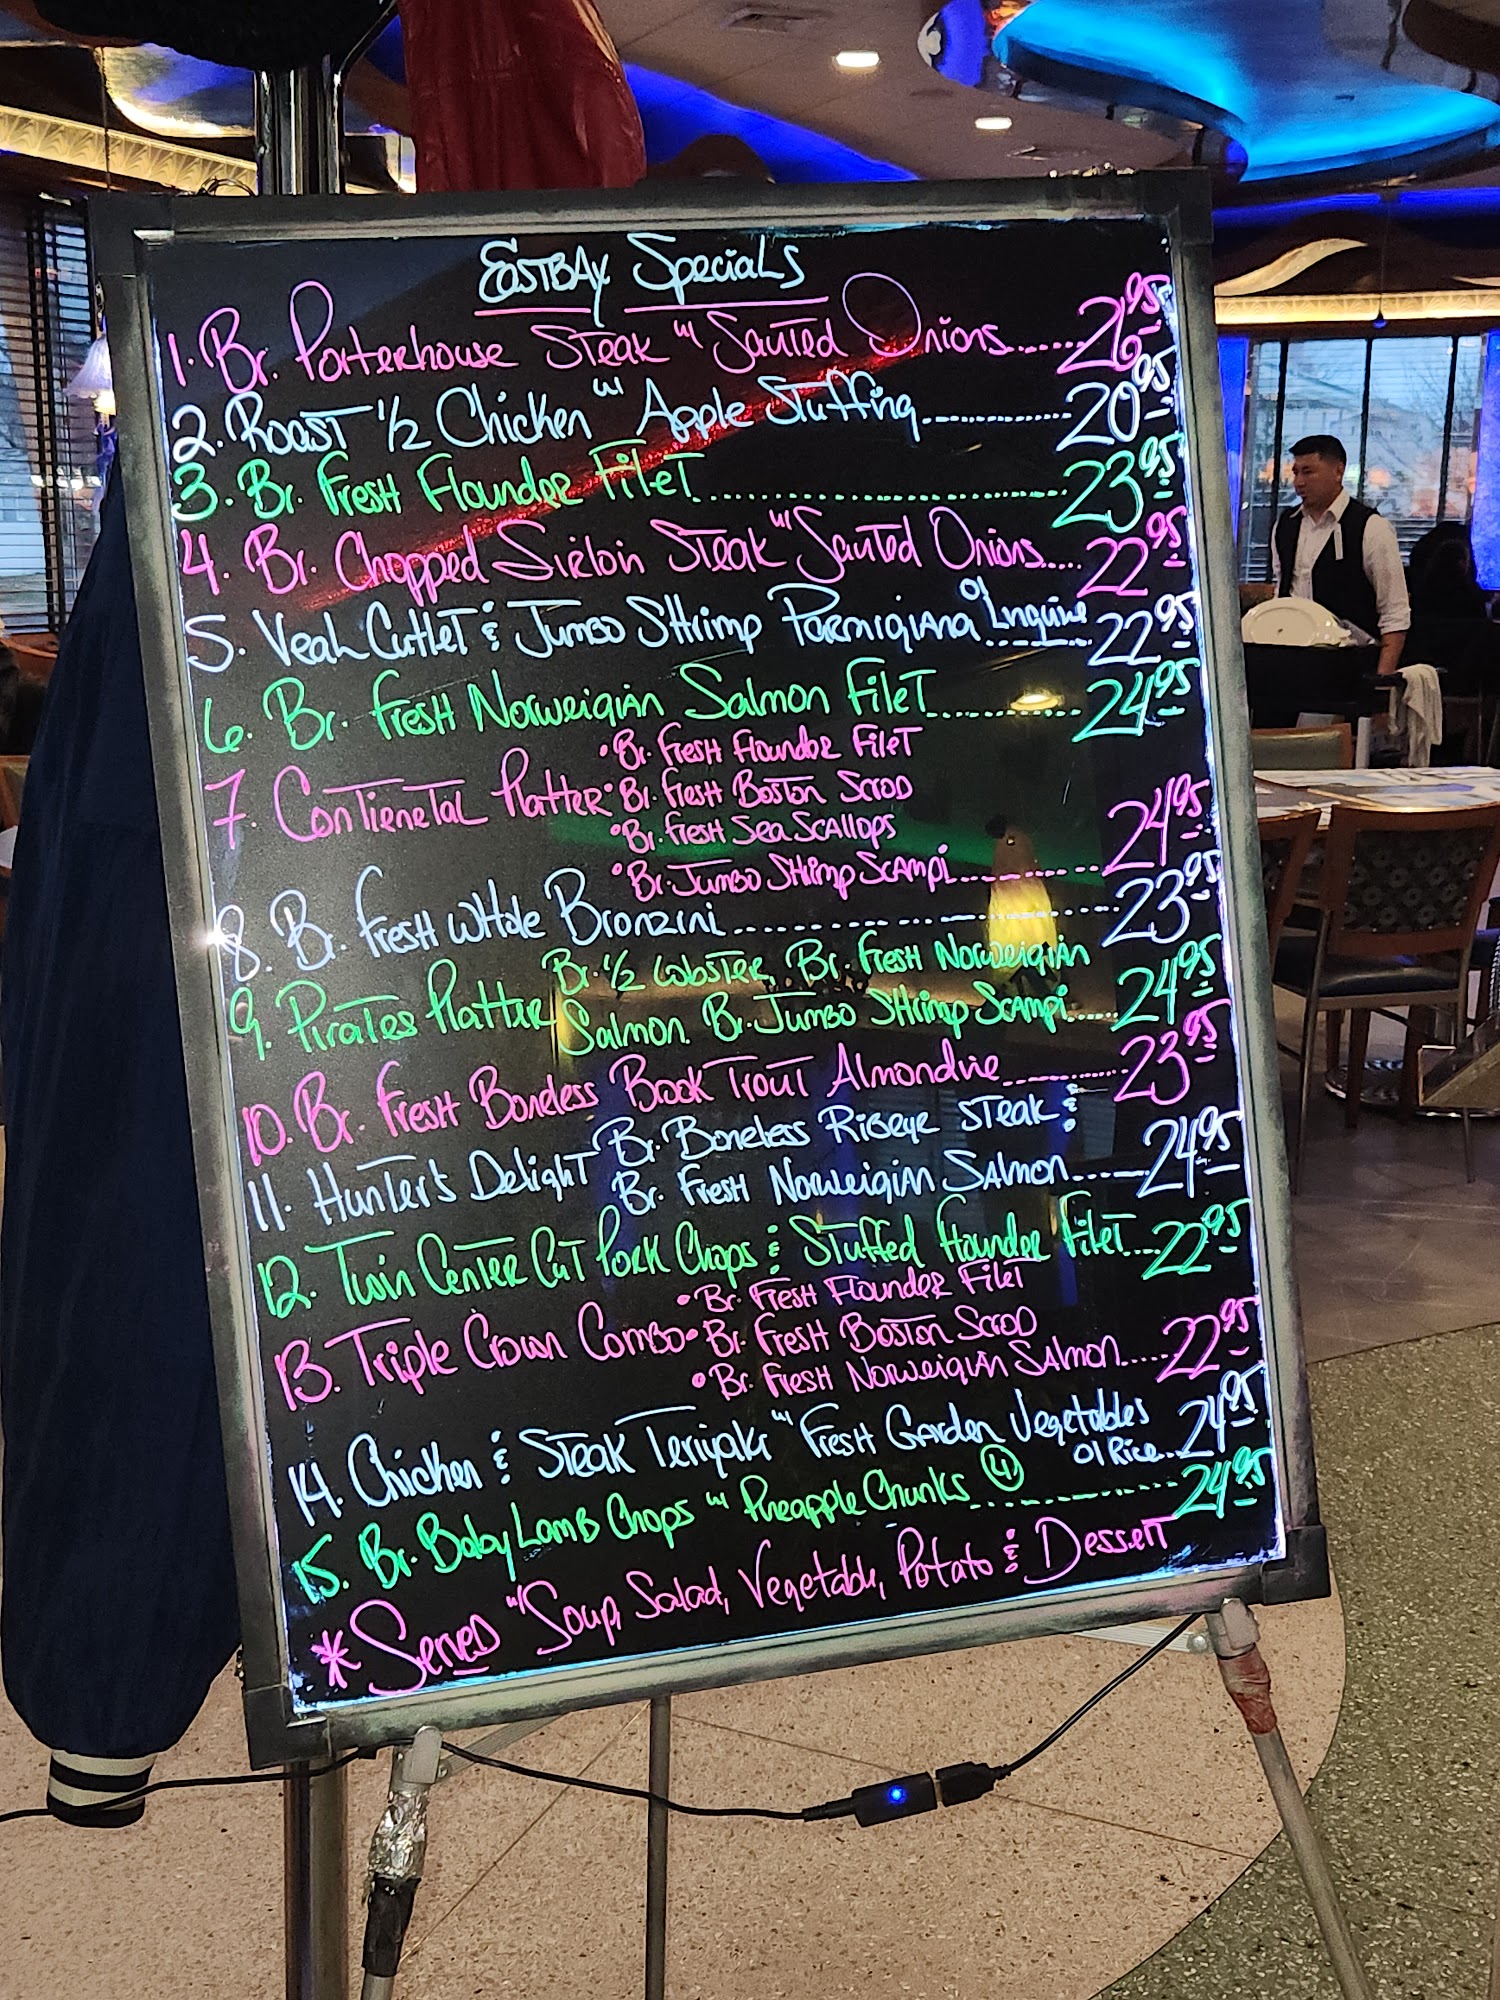 EastBay Specials
1. Br. Porterhouse Steak w/ Sauted Onions......26.95
2. Roast 1/2 Chicken w/ Apple Stuffing..........20.95
3. Br. Fresh Flounder Filet..........23.95
4. Br. Chopped Sirloin Steak w/ Sauted Onions.....22.95
5. Veal Cutlet & Jumbo Shrimp Parmigiana O/ Linguine......22.95
6. Br. Fresh Norweigian Salmon Filet..........24.95
• Br. Fresh Flounder Filet
7. Contienetal Platter • Br. Fresh Boston Scrod
• Br. Fresh Sea Scallops
• Br. Jumbo Shrimp Scampi..........24.95
8. Br. Fresh Whole Bronzini..........23.95
9. Pirates Platter Br. 1/2 Lobster, Br. Fresh Norweigian
Salmon. Br. Jumbo Shrimp Scampi......24.95
10. Br. Fresh Boneless Brook Trout Almondine..........23.95
11. Hunter's Delight Br. Boneless Ribeye Steak &
Br. Fresh Norweigian Salmon......24.95
12. Twin Center Cut Pork Chops & Stuffed Flounder Filet....22.95
• Br. Fresh Flounder Filet
13. Triple Crown Combo • Br. Fresh Boston Scrod
• Br. Fresh Norweigian Salmon.....22.95
14. Chicken & Steak Teriyaki w/ Fresh Garden Vegetables
O/ Rice...24.95
15. Br. Baby Lamb Chops w/ Pineapple Chunks (4)..........24.95
* Served w/ Soup, Salad, Vegetable, Potato & Dessert